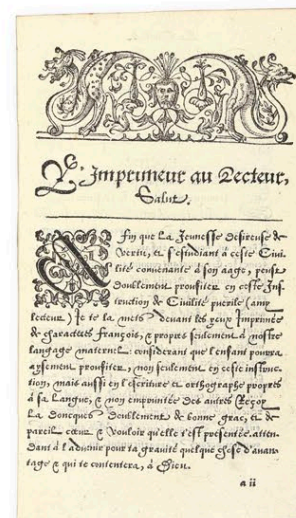 L'Imprimeur au Lecteur,
Salut.
Afin que la Jeunesse desireuse de
vertu, et s'estudiant à ceste Civi-
lité convenante à son aage, peust
doublement prousiter en ceste Ins-
truction de Civilité puerile (amy
lecteur) Je te la mets devant les yeux Imprimée
de characteres François, & propres seulement à nostre
langage maternel: considerant que l'enfant pourra
aysement prousiter, non seulement en ceste instruc-
tion, mais aussi en l'escriture et orthographe propres
à sa Langue, & non empruntée des autres. Reçoy
la Doncques doublement de bonne grac, et de
pareil cœur & vouloir qu'elle t'est presentée, atten-
dant à l'advenir pour ta gravité quelque chose d'avan-
tage & qui te contentera, à Dieu.
a ii